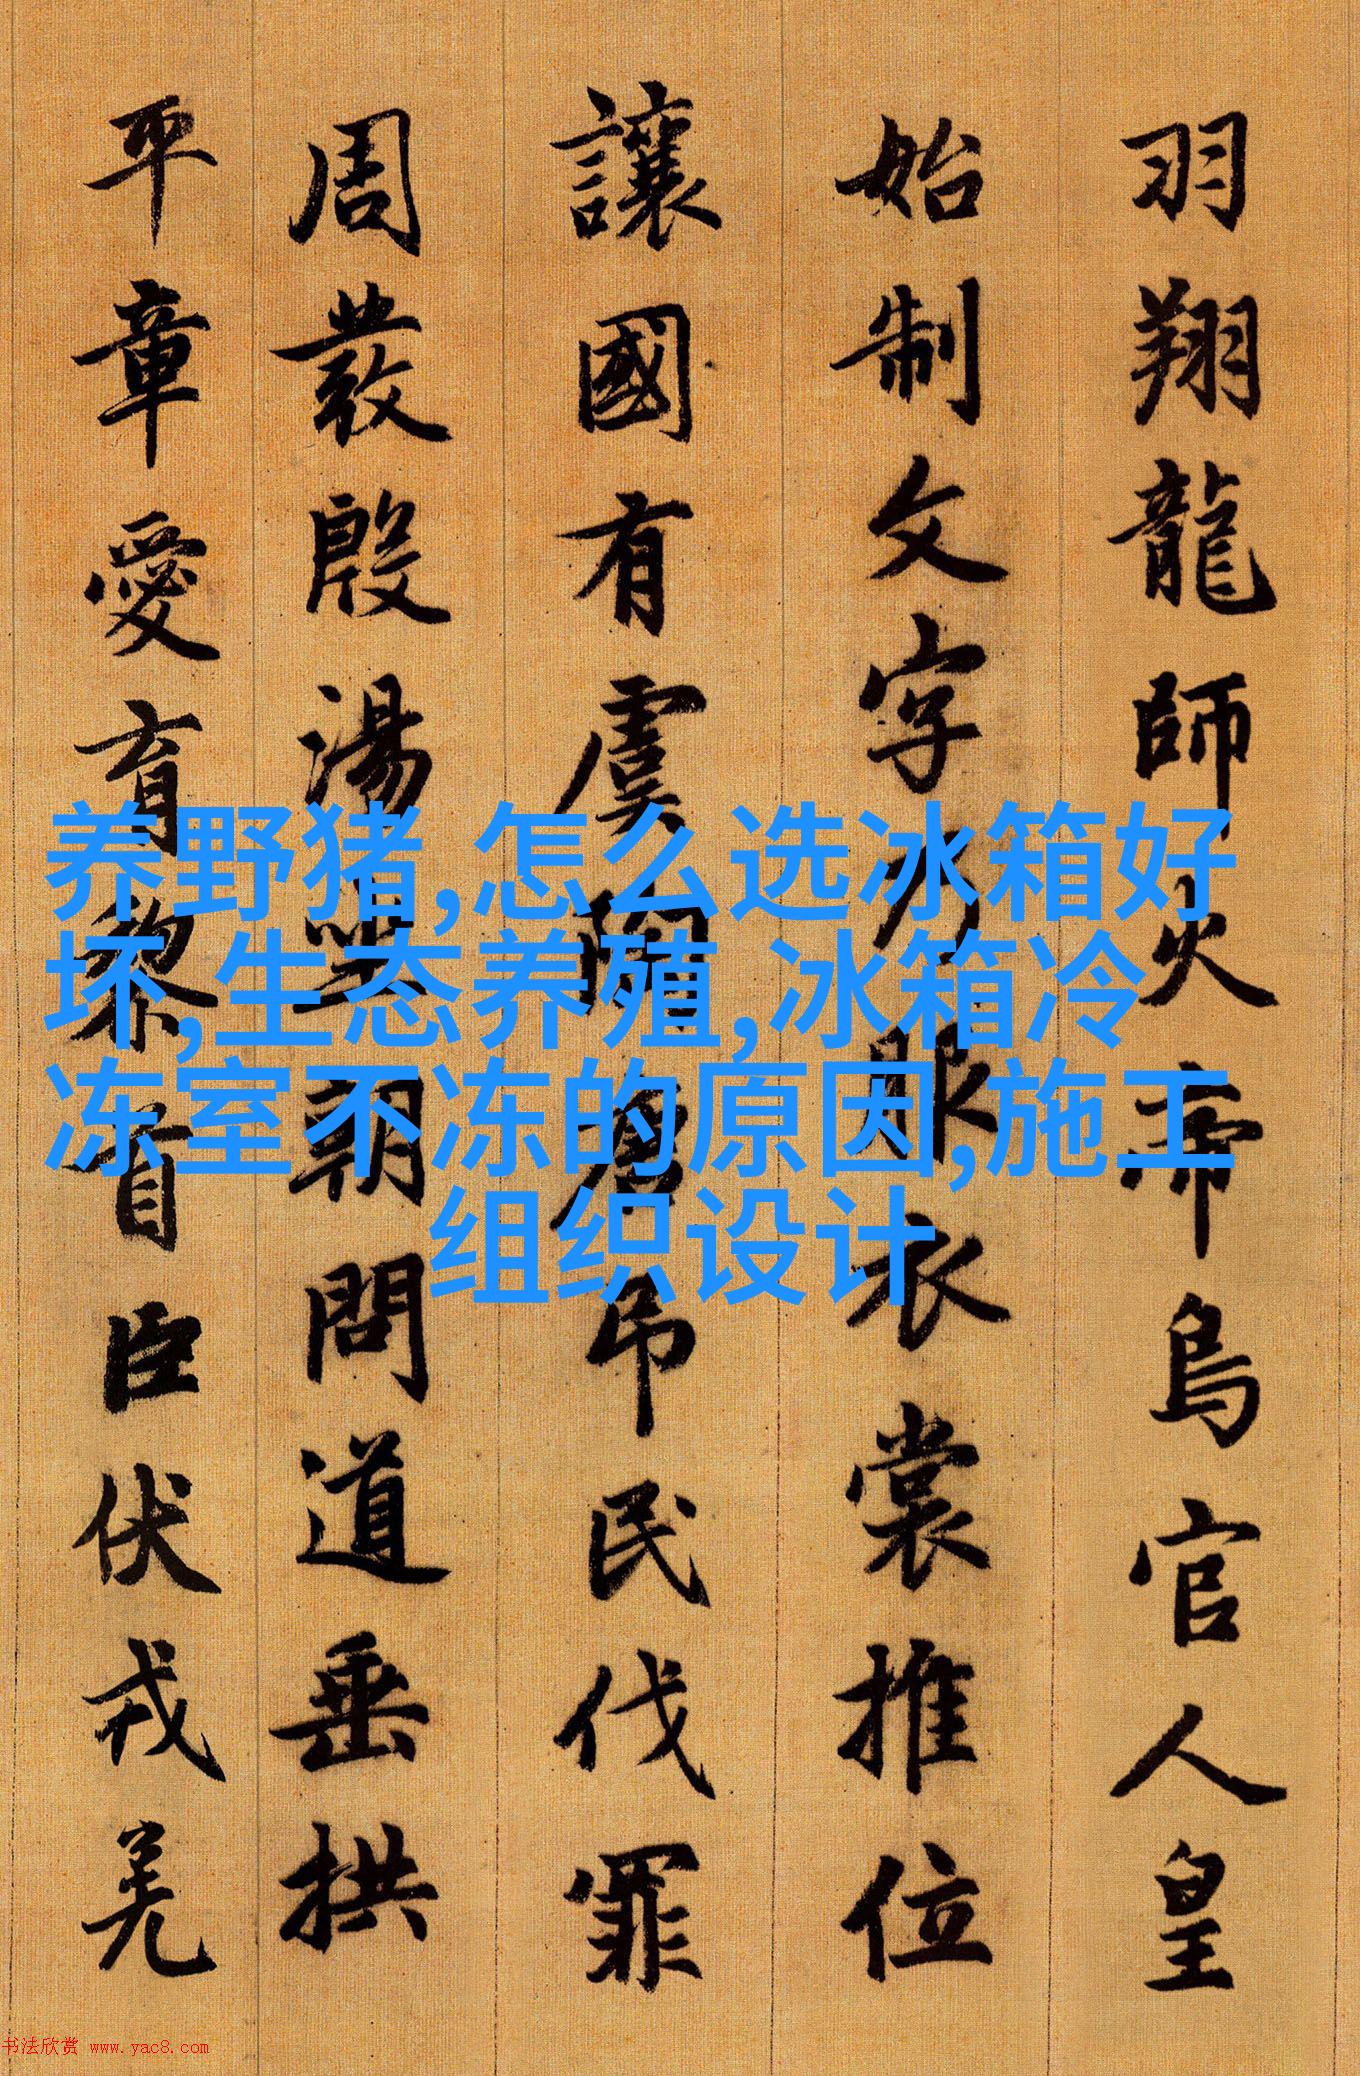 羽翔龍師火帝鳥官人皇
始制文字乃服衣裳推位
讓國有虞陶唐弔民伐罪
周發殷湯坐朝問道垂拱
平章愛育黎首臣伏戎羌
养野猪,怎么选冰箱好
坏,生态养殖,冰箱冷
冻室不冻的原因,施工
组织设计
书法欣赏 www.yac8.com